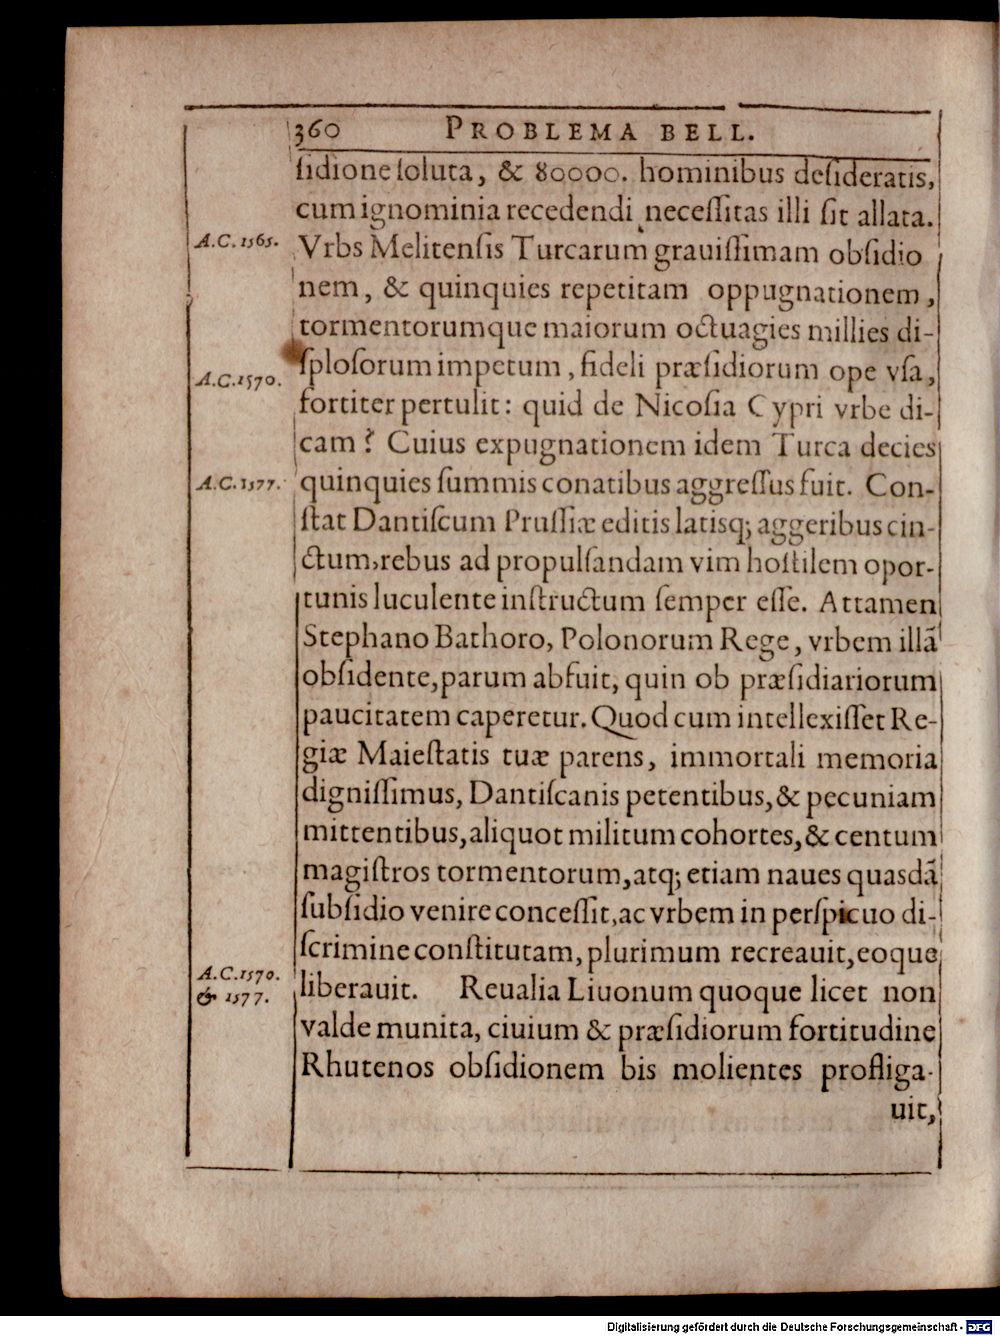 360 PROBLEMA BELL.
ſidione ſoluta, & 80000. hominibus deſideratis,
cum ignominia recedendi neceſſitas illi ſit allata.
A.C. 1565. Vrbs Melitenſis Turcarum grauiſſimam obſidio
nem, & quinquies repetitam oppugnationem,
tormentorumque maiorum octuagies millies di-
ſploſorum impetum, fideli præſidiorum ope vſa,
A.C. 1570. fortiter pertulit: quid de Nicoſia Cypri vrbe di-
cam? Cuius expugnationem idem Turca decies
A.C. 1577. quinquies ſummis conatibus aggreſſus fuit. Con-
ſtat Dantiſcum Pruſſiæ editis latisq; aggeribus cin-
ctum, rebus ad propulſandam vim hoſtilem opor-
tunis luculente inſtructum ſemper eſſe. Attamen
Stephano Bathoro, Polonorum Rege, vrbem illã
obſidente, parum abfuit, quin ob præſidiariorum
paucitatem caperetur. Quod cum intellexiſſet Re-
giæ Maieſtatis tuæ parens, immortali memoria
digniſſimus, Dantiſcanis petentibus, & pecuniam
mittentibus, aliquot militum cohortes, & centum
magiſtros tormentorum, atq; etiam naues quasdã
ſubſidio venire conceſſit, ac vrbem in perſpicuo di-
ſcrimine conſtitutam, plurimum recreauit, eoque
A.C. 1570. liberauit. Reualia Liuonum quoque licet non
& 1577. valde munita, ciuium & præſidiorum fortitudine
Rhutenos obſidionem bis molientes profliga-
uit,
Digitalisierung gefördert durch die Deutsche Forschungsgemeinschaft - DFG